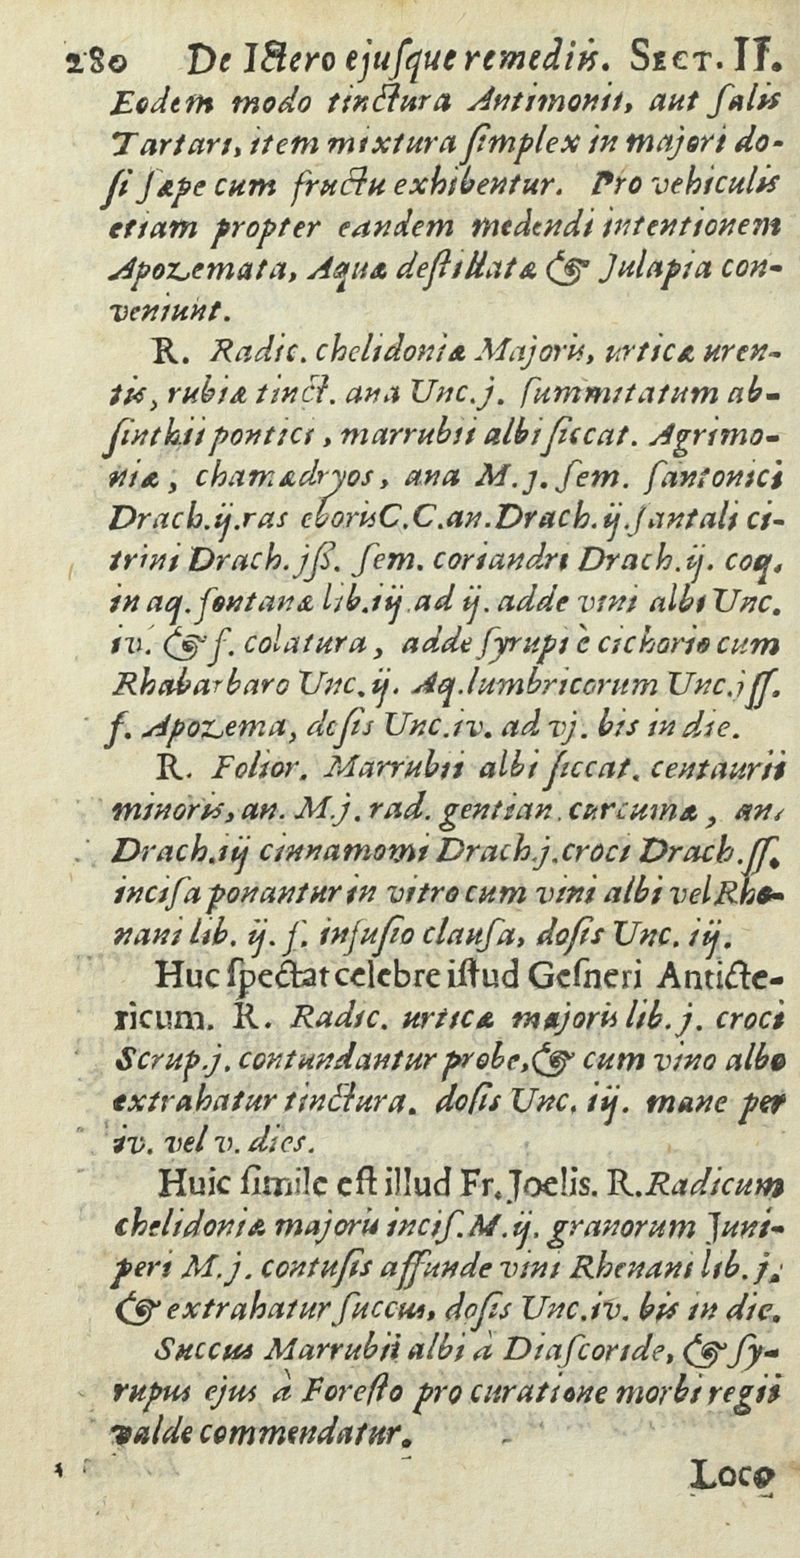 280 De Ictero ejuſque remediis. SECT. II.
Eodem modo tinctura Antimonii, aut ſalis
Tartari, item mixtura ſimplex in majori do-
ſi ſæpe cum fructu exhibentur. Pro vehiculis
etiam propter eandem medendi intentionem
Apozemata, Aquæ deſtillatæ & Julapia con-
veniunt.
R. Radic. chelidoniæ Majoris, urticæ uren-
tis, rubiæ tinct. ana Unc.j. ſummitatum ab-
ſinthii pontici, marrubii albi ſiccat. Agrimo-
niæ, chamædryos, ana M.j. ſem. ſantonici
Drach.ij.ras eboris C.C.an.Drach.ij.ſantali ci-
trini Drach.jß. ſem. coriandri Drach.ij. coq.
in aq. fontanæ lib.iij.ad ij. adde vini albi Unc.
iv. & f. colatura, adde ſyrupi è cichorio cum
Rhabarbaro Unc.ij. Aq.lumbricorum Unc.jſſ.
f. Apozema, doſis Unc.iv. ad vj. bis in die.
R. Folior. Marrubii albi ſiccat. centaurii
minoris, an. M.j. rad. gentian. curcumæ, an.
Drach.iij cinnamomi Drach.j.croci Drach.ſſ.
inciſa ponantur in vitro cum vini albi vel Rhe-
nani lib. ij. f. infuſio clauſa, doſis Unc. iij.
Huc ſpectat celebre iſtud Geſneri Anticte-
ricum. R. Radic. urticæ majoris lib. j. croci
Scrup.j. contundantur probe, & cum vino albo
extrahatur tinctura. doſis Unc. iij. mane per
iv. vel v. dies.
Huic ſimile eſt illud Fr. Joelis. R. Radicum
chelidoniæ majoris inciſ. M.ij. granorum Juni-
peri M.j. contuſis affunde vini Rhenani lib. j.
& extrahatur ſuccus, doſis Unc.iv. bis in die.
Succus Marrubii albi à Diaſcoride, & ſy-
rupus ejus à Foreſto pro curatione morbi regii
valde commendatur.
Loco